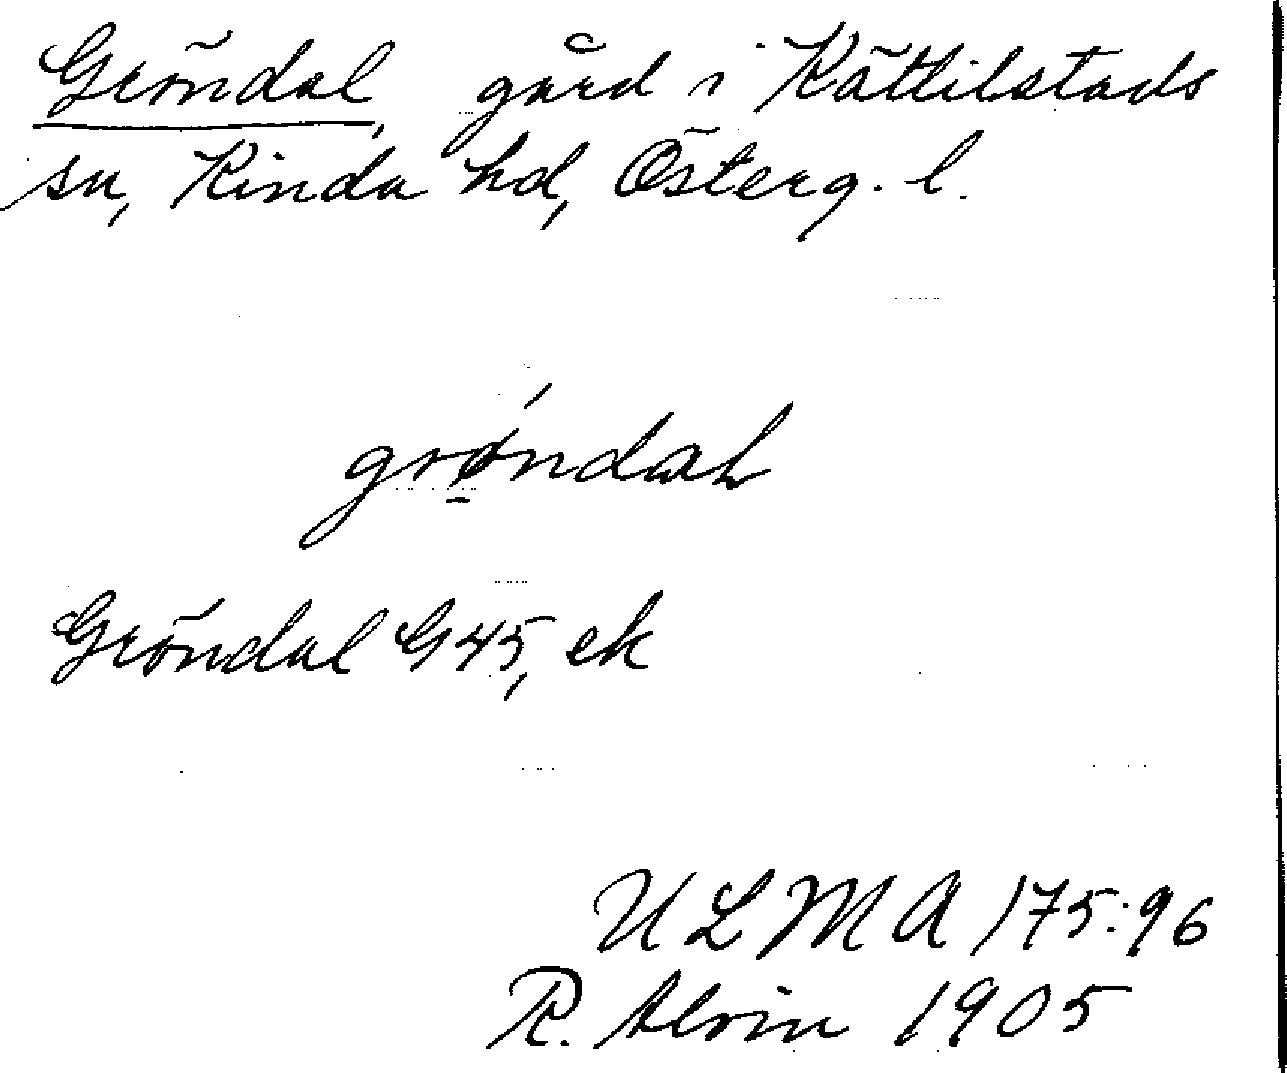 Gröndal, gård i Kättilstads
sn, Kinda hd, Österg. l.
grǿ̱ndał
Gröndal G45, ek
ULMA 175:96
R. Alvin 1905